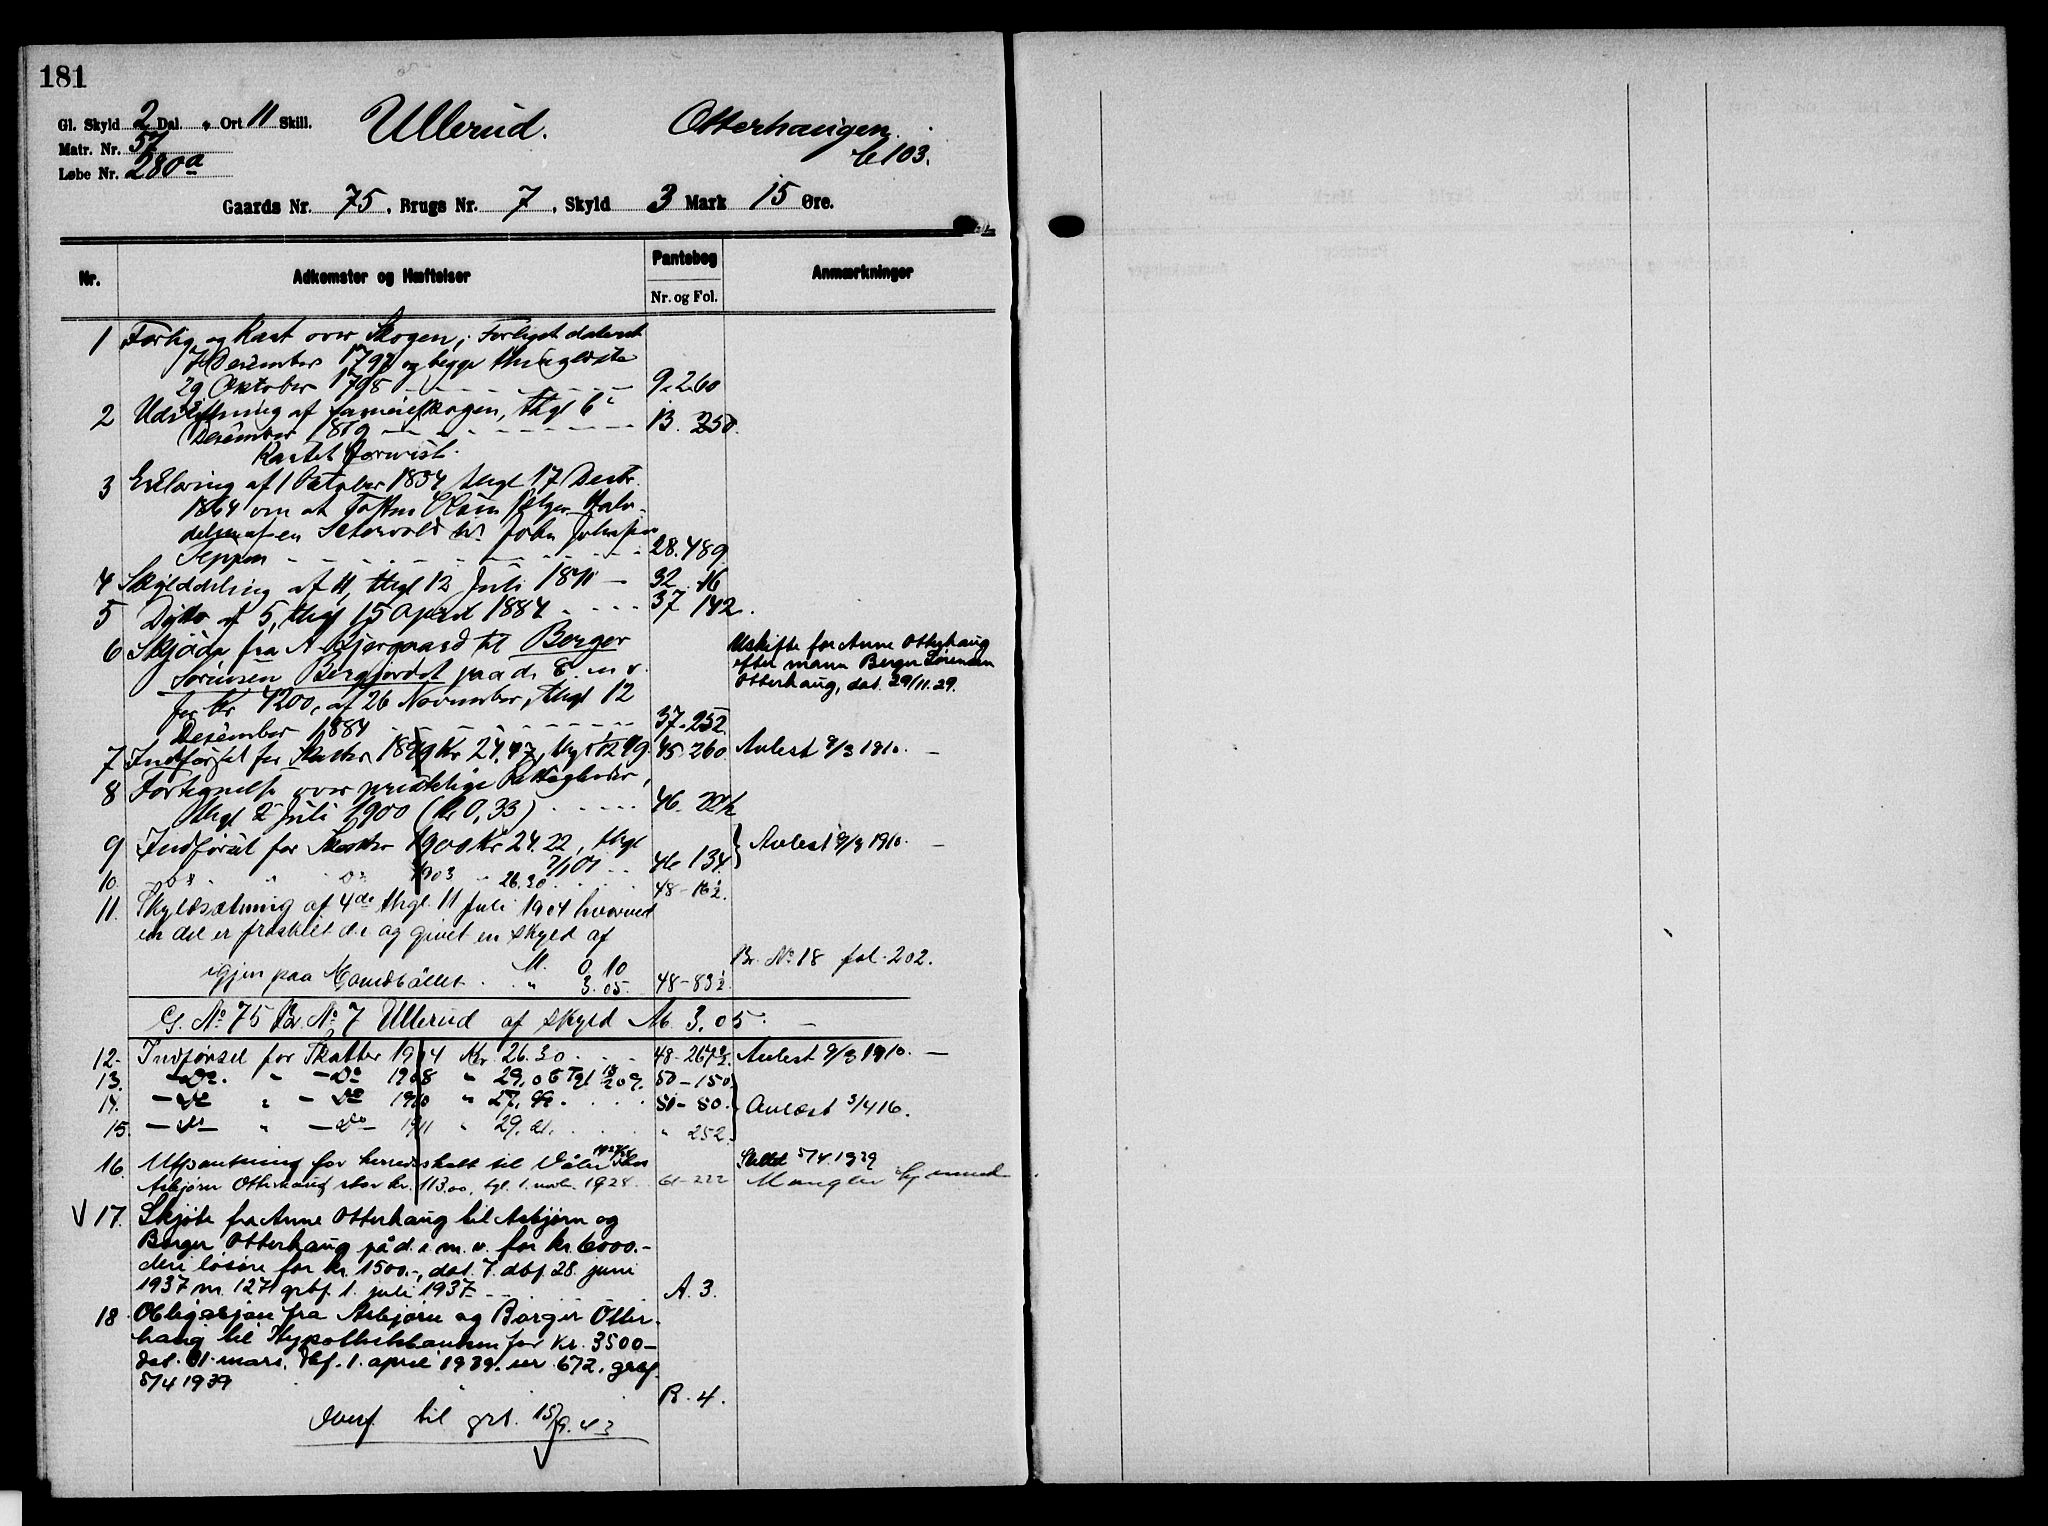 181
Gl. Skyld 2 Dal. „ Ort 11 Skill. Ullerud. Otterhaugen.
Matr. Nr. 57 b 103.
Løbe Nr. 280a
Gaards Nr. 75, Brugs Nr. 7, Skyld 3 Mark 15 Øre.
Nr. Adkomster og Hæftelser Pantebog Anmærkninger
Nr. og Fol.
1 Forlig og Kast over Skogen, Forliget dateret
7 Desember 1797 og begge thinglæste
29 Oktober 1798 9. 260
2 Udskiftning af sameieskogen, thgl 6
Desember 1819 13. 250.
Kastet forvist.
3 Erklæring af 1 Oktober 1854 thgl 17 Decbr.
1864 om at Olsen sælger Halv-
delen af en Setervold til John Johnsen
Seppen 28. 489.
4 Skylddeling af 11, thgl 12 Juli 1871 32. 16
5 Ditto af 5, thgl 15 April 1884 37 142.
6 Skjøde fra A Bjergaard til Berger
Sørensen Bergfordet paa d. E. m v.
for Kr 4200, af 26 November, thgl 12
Desember 1884 37. 252
Uskifte for Anne Otterhaug
efter mann Berger Sørensen
Otterhaug, dat. 29/11.29.
7 Indførsel for Skatter 1899 Kr 24.47, thgl 45-260 Avlest 9/3 1910. —
8 Fortegnelse over
thgl 2 Juli 1900 (kr 0,33) 46-
9 Indførsel for Skatter 1900 Kr 24.22, thgl
7/1 01 46 134. } Avlest 9/3 1910. —
10. Do " Do 1903 " 26.30 48-16½.
11. Skyldsætning af 4de thgl. 11 Juli 1904 hvorved
en del er fraskilt d.e. og givet en skyld af
M. 0.10 Br. No 18 fol. 202.
igjen paa Hovedbøllet " 3.05. 48-83½.
G. No 75 Br. No 7 Ullerud af skyld M. 3.05. —
12. Indførsel for Skatter 1904 Kr. 26.30 48-267½ Avlest 9/3 1910. —
13. — Do. " — Do 1908 " 29,06 Tgl 50-150
14. — Do " — Do 1910 " 27, 51-80. } Avlæst 3/4 16.
15. — Do — " — Do — 1911 " 29. " 252.
16. Utpantning for herredsskatt til Våler hos
Asbjørn Otterhaug stor kr. 113.00, tgl. 1. 1928 61-222
Slettet 5/4.1939
Mangler
V 17. Skjøte fra Anne Otterhaug til Asbjørn og
Borger Otterhaug på d. e m. v. for kr. 6000.-
derav løsøre for kr. 1500.-, dat. 7. dbf. 28. juni
1937 nr. 1271 grbf. 1. juli 1937 A. 3.
18. Obligasjon fra Asbjørn og Borger Otter-
haug til Hypothekbanken for kr. 3500-
dat. 31. mars. dbf. 1. april 1939. nr. 672. grbf.
5/4 1939 B. 4.
Overf. til grb. 15/9.43